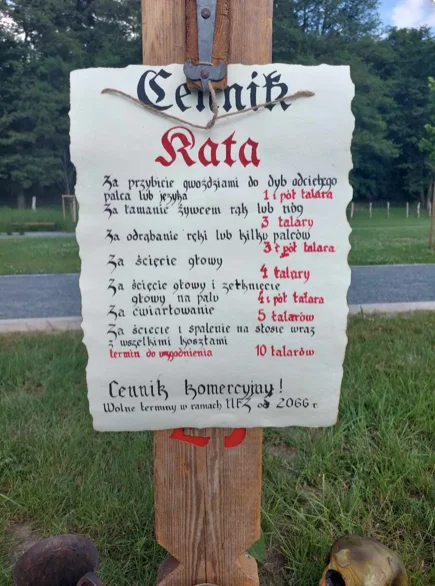 Cennik
Kata
Za przybicie gwoździami do dyb odciętego
palca lub języka 1 i pół talara
Za łamanie żywcem rąk lub nóg
3 talary
Za odrąbanie ręki lub kilku palców
3 i pół talara
Za ścięcie głowy
4 talary
Za ścięcie głowy i zetknięcie
głowy na palu 4 i pół talara
Za ćwiartowanie 5 talarów
Za ścięcie i spalenie na stosie wraz
z wszelkimi kosztami
termin do uzgodnienia 10 talarów
Cennik komercyjny!
Wolne terminy w ramach NFZ od 2066 r.